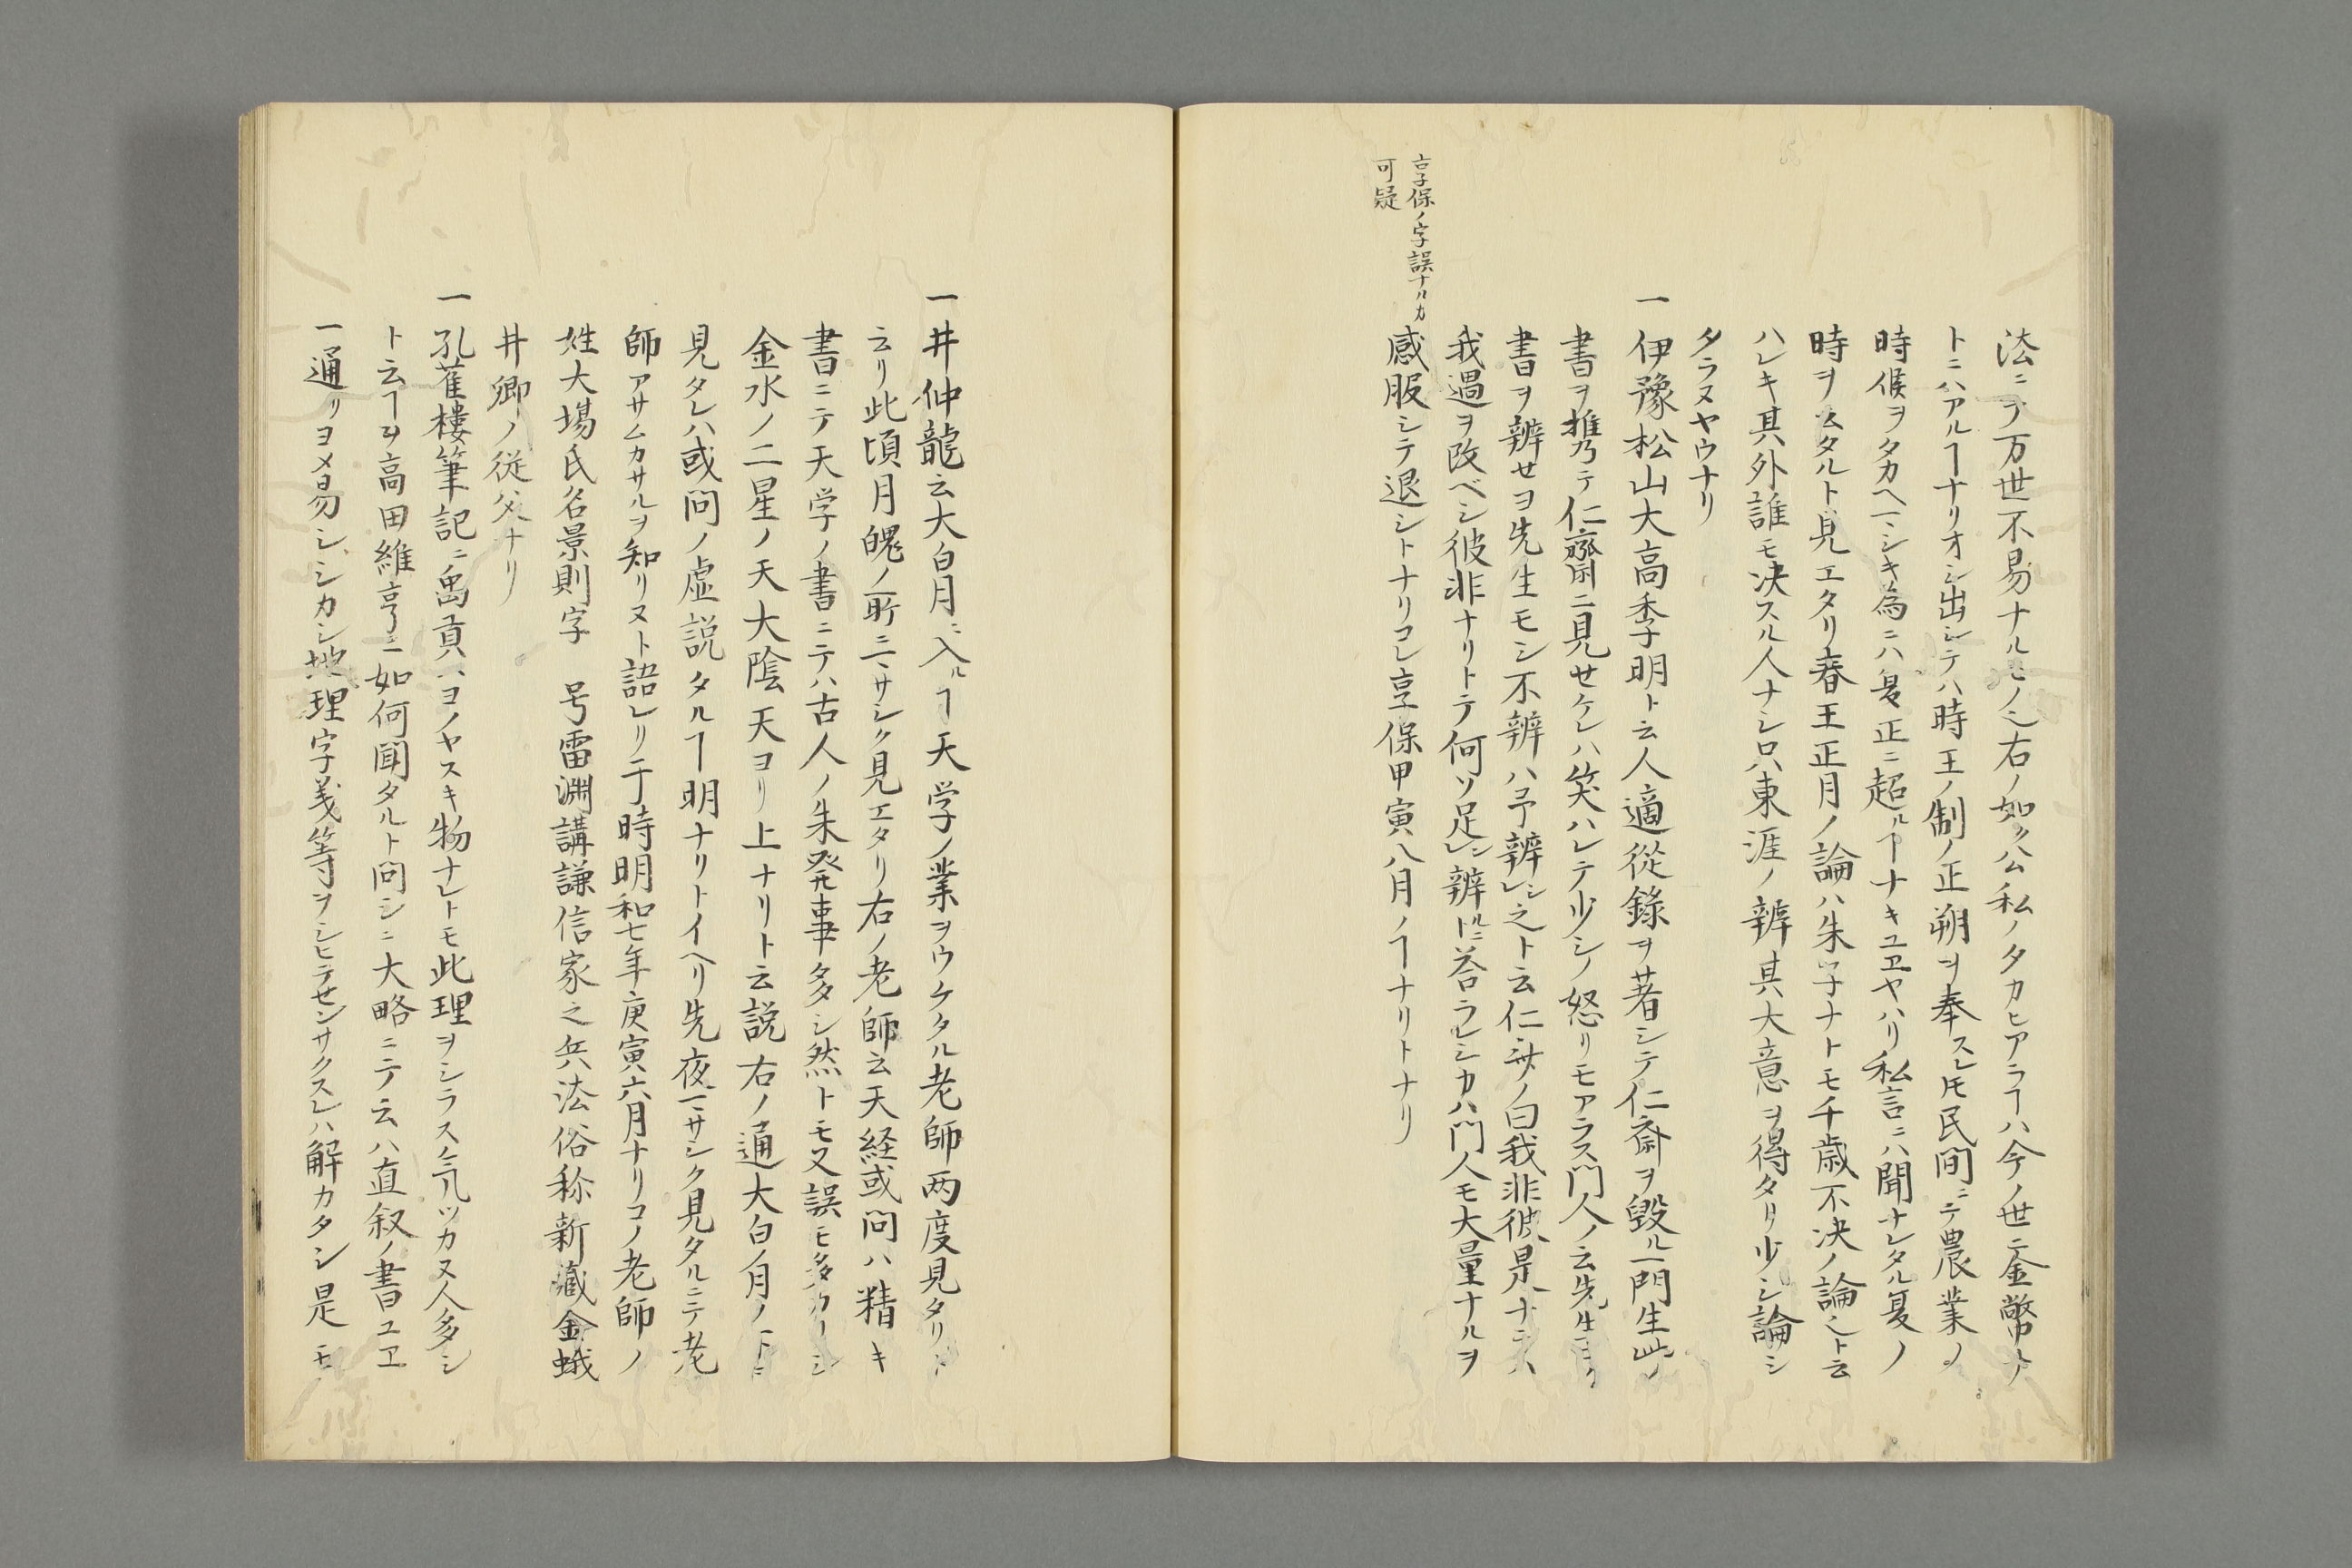 法ニヲ万世不易ナルモノ也右ノ如ク公私ノタカヒアラヿハ今ノ世ニ金幣ナ
トニハアルヿナリオシ出シテハ時王ノ制ノ正朔ヲ奉スレ𪜈民間ニテ農業ノ
時候ヲタカヘマシキ為ニハ夏正ニ超ルヿナキユヱヤハリ私言ニハ聞ナレタル夏ノ
時ヲ云タルト見エタリ春王正月ノ論ハ朱子ナトモ千歳不决ノ論也ト云
ハレキ其外誰モ决スル人ナシ只東涯ノ辨其大意ヲ得タリ少シ論シ
タラヌヤウナリ
一伊豫松山大高季明ト云人適從錄ヲ著シテ仁斎ヲ毀ル一門生此ノ
書ヲ携テ仁齋ニ見セケレハ笑ハレテ少シノ怒リモアラス門人ノ云先生
書ヲ辨セヨ先生モシ不辨ハ予辨レシ之ト云仁斎ノ曰我非彼是ナラハ
我過ヲ改ベシ彼非ナリトテ何ソ足レン辨ルニト荅ラレシカハ門人モ大量ナルヲ
享保ノ字誤ナルカ
可疑
感服シテ退シトナリコレ享保甲寅八月ノヿナリトナリ
一井仲龍云大白月ニ入ルヿ天学ノ業ヲウケタル老師两度見タリト
云リ此頃月魄ノ所ニマサシク見エタリ右ノ老師云天経或問ハ精キ
書ニテ天学ノ書ニテハ古人ノ朱発事多シ然トモ又誤モ多カリシ
金水ノ二星ノ天大陰天ヨリ上ナリト云説右ノ通大白ノ月ノ下ニ
見タレハ或問ノ虚説タルヿ明ナリトイヘリ先夜マサシク見タルニテ老
師アサムカサルヲ知リヌト語レリ于時明和七年庚寅六月ナリコノ老師ノ
姓大塲氏名景則字　号雷淵講謙信家之兵法俗称新藏金蛾
井卿ノ従父ナリ
一孔雀樓筆記ニ禹貢ハヨノヤスキ物ナレトモ此理ヲシラス氣ツカヌ人多シ
ト云ヿヲ高田維亨ニ如何聞タルト問シニ大略ニテ云ハ直叙ノ書ユヱ
一通リヨメ易シ､シカシ地理字義等ヲシヒテセンサクスレハ解カタシ是モ